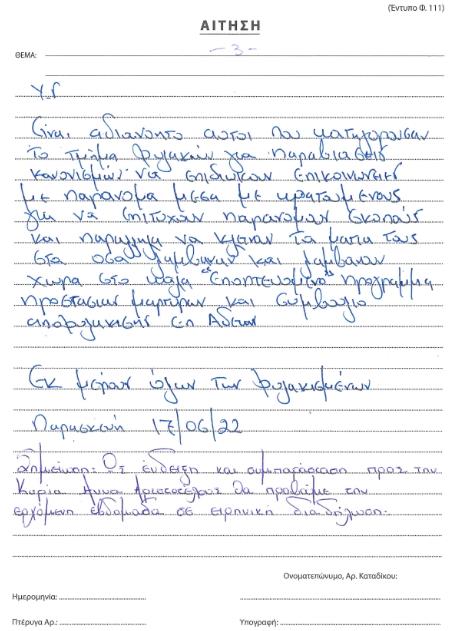 (Έντυπο Φ. 111)
ΑΙΤΗΣΗ
ΘΕΜΑ: - 3 -
Υ.Γ
Είναι αδιανοητο αυτοι που κατηγορουσαν
Το τμήμα φυλακών για παραβιασεις
κανονισμών να επιδιωκουν επικοινωνιες
με παρανομα μεσσα με κρατουμενους
για να επιτυχουν παρανομων σκοπους
και παραλληλα να κλειναν τα ματια τους
στα οσα λαμβαναν και λαμβανουν
χωρα στο "Εποπτευομενο" προγραμμα
προστασιας μαρτυρων και Συμβουλιο
αποφυλακισης επ Αδεια
Εκ μέρους όλων των φυλακισμένων
Παρασκευή 17/06/22
Σημείωση: Ως ένδειξη και συμπαράσταση προς την
Κυρία Άννα Αριστοτέλους θα προβούμε την
ερχόμενη εβδομάδα σε ειρηνική διαδήλωση.
Ονοματεπώνυμο, Αρ. Καταδίκου:
Ημερομηνία:
Πτέρυγα Αρ.: Υπογραφή: